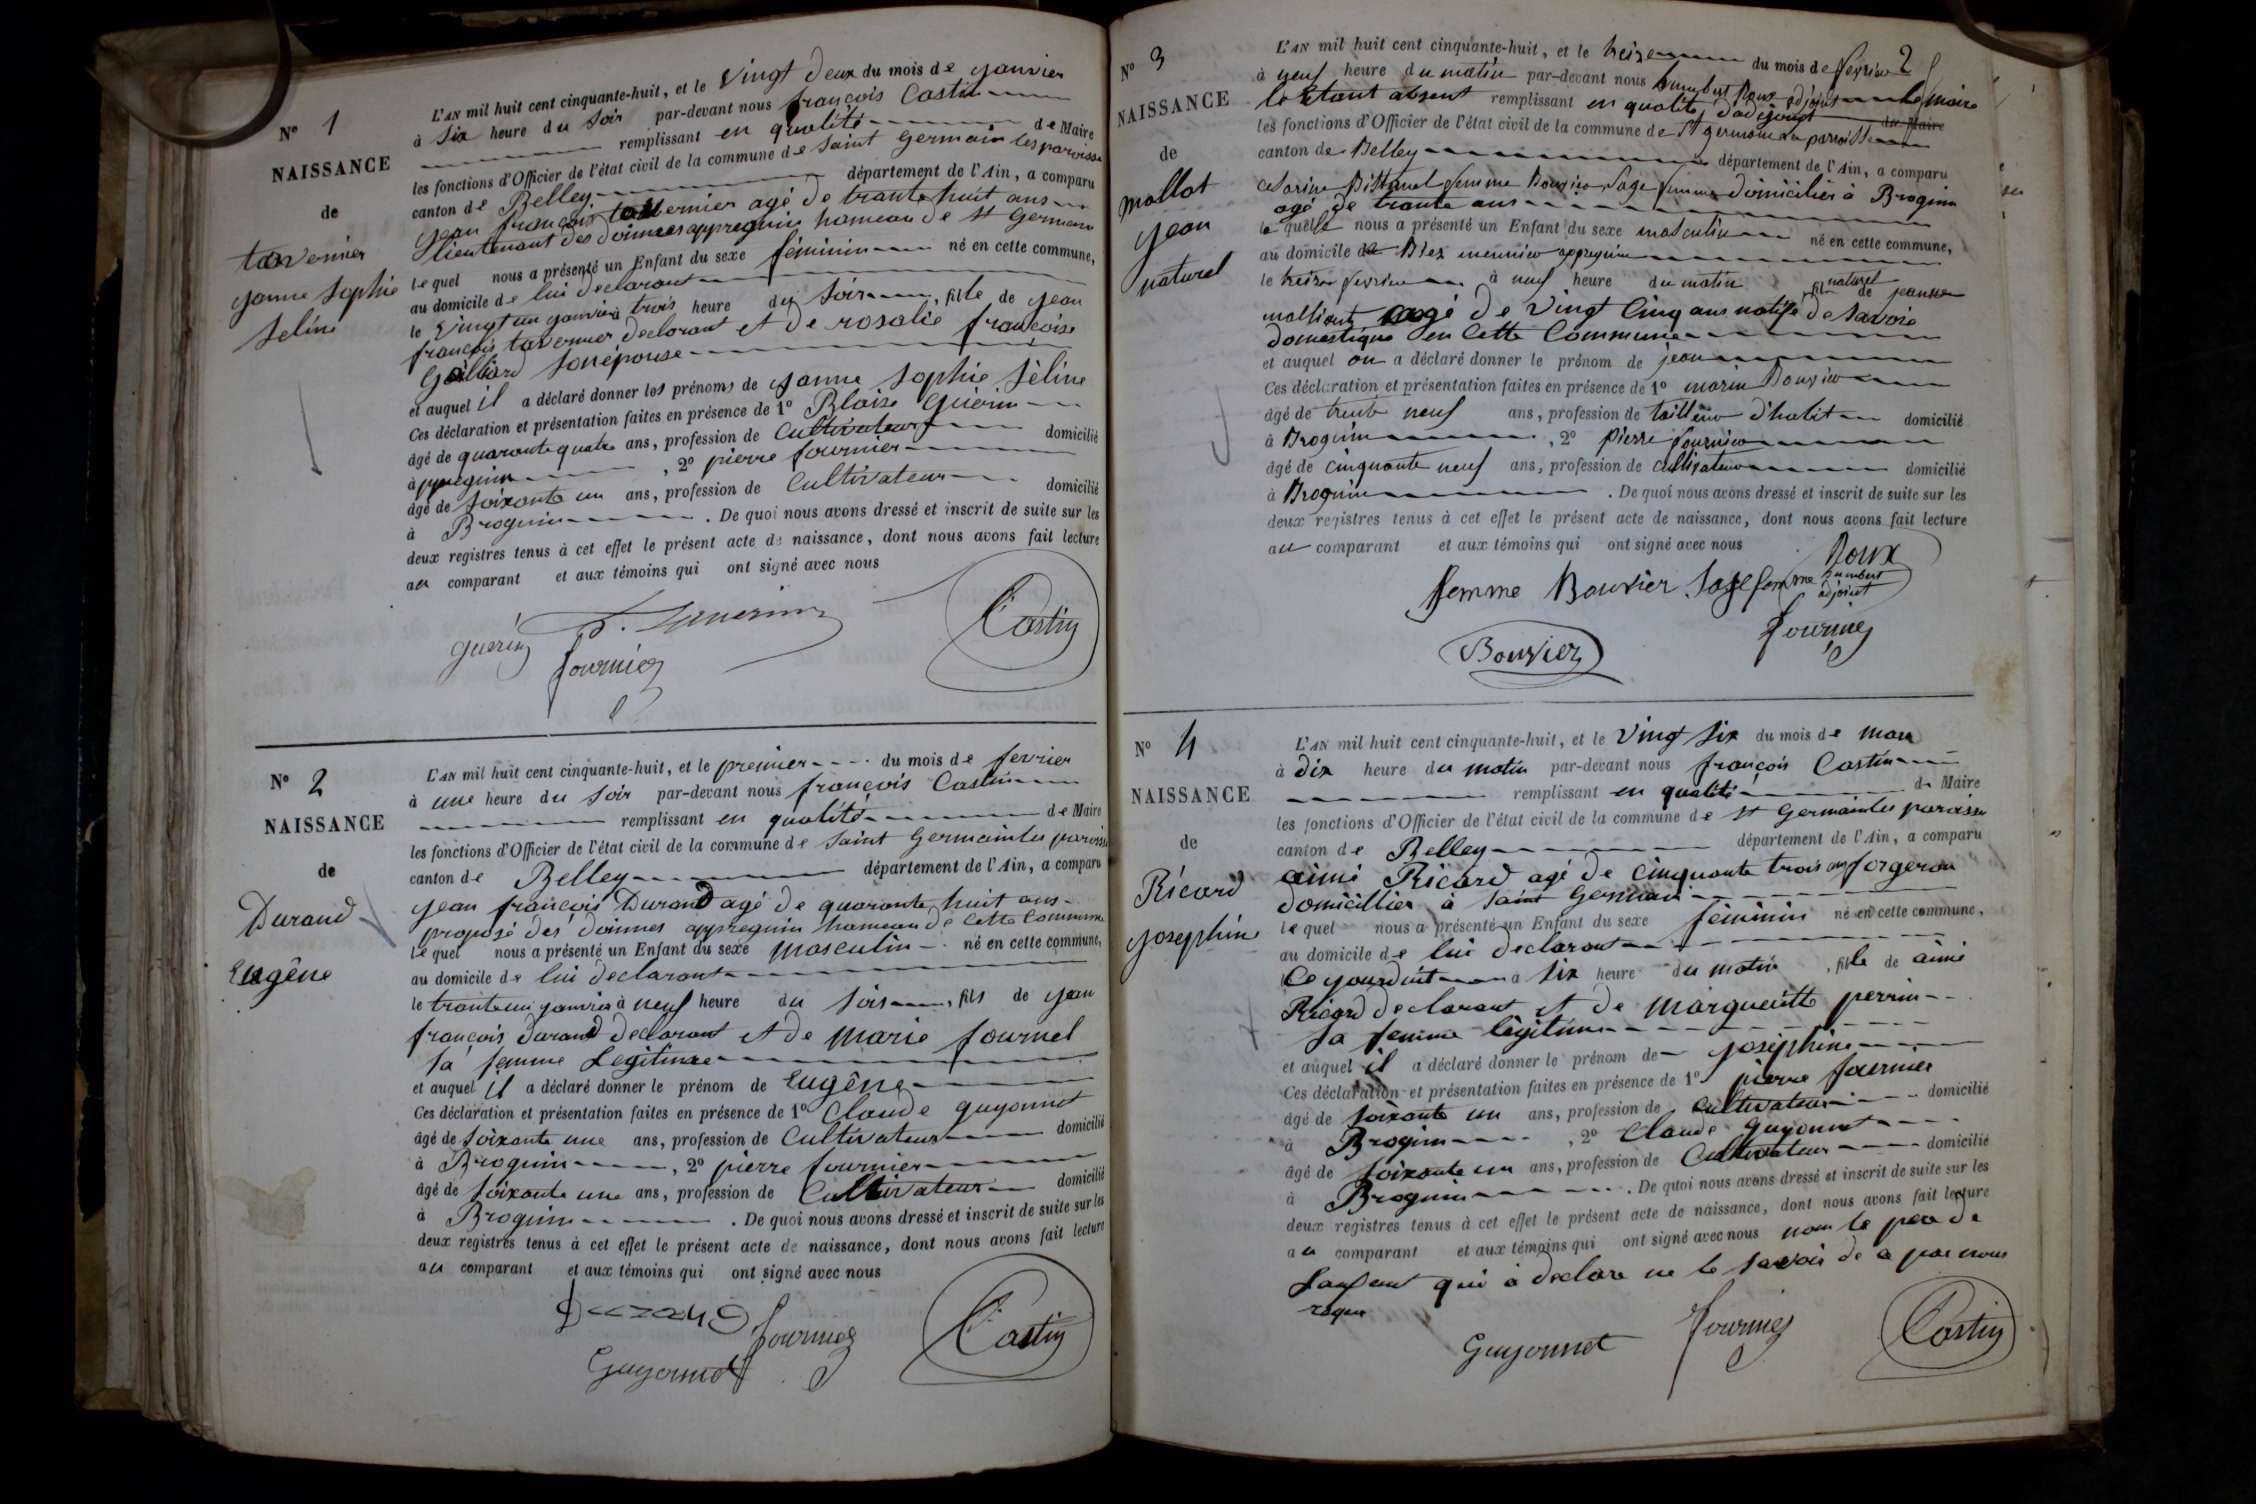 N° 1
NAISSANCE
de
tavernier
jeanne Sophie
Séline
L'AN mil huit cent cinquante-huit, et le vingt deux du mois de janvier
à six heure du soir par-devant nous françois Castin
remplissant en qualité de Maire
les fonctions d'Officier de l'état civil de la commune de saint germain les paroisse
canton de Belley département de l'Ain, a comparu
jean françois tavernier agé de trante huit ans
lieutenant des doinnes appregnin hameau de st Germain
le quel nous a présenté un Enfant du sexe féminin né en cette commune,
au domicile de lui declarant
le vingt un janvier à trois heure du soir, fille de jean
françois tavernier declarant et de rosalie françoise
Gailliard son épouse
et auquel il a déclaré donner les prénoms de jeanne Sophie Séline
Ces déclaration et présentation faites en présence de 1° Blaise Guérin
âgé de quarante quatre ans, profession de Cultivateur domicilié
à ppregnin, 2° pierre fournier
âgé de soixante un ans, profession de Cultivateur domicilié
à Brognin. De quoi nous avons dressé et inscrit de suite sur les
deux registres tenus à cet effet le présent acte de naissance, dont nous avons fait lecture
au comparant et aux témoins qui ont signé avec nous
guérin
fournier
Castin
N° 2
NAISSANCE
de
Durand
Eugêne
L'AN mil huit cent cinquante-huit, et le premier du mois de fevrier
à une heure du soir par-devant nous françois Castin
remplissant en qualité de Maire
les fonctions d'Officier de l'état civil de la commune de saint Germain les paroisse
canton de Belley département de l'Ain, a comparu
jean françois Durand agé de quarante huit ans
préposé des doinnes appregnin hameau de cette Commune
le quel nous a présenté un Enfant du sexe masculin né en cette commune,
au domicile de lui declarant
le trante un janvier à neuf heure du soir, fils de jean
françois durand declarant et de marie fournel
sa femme Legitime
et auquel il a déclaré donner le prénom de Eugêne
Ces déclaration et présentation faites en présence de 1° Claude guyonnet
âgé de soixante une ans, profession de Cultivateur domicilié
à Brognin, 2° pierre fournier
âgé de soixante une ans, profession de Cultivateur domicilié
à Brognin. De quoi nous avons dressé et inscrit de suite sur les
deux registres tenus à cet effet le présent acte de naissance, dont nous avons fait lecture
au comparant et aux témoins qui ont signé avec nous
Durand
fournier
Guyonnet
Castin
2
N° 3
NAISSANCE
de
mollot
jean
naturel
L'AN mil huit cent cinquante-huit, et le treize du mois de fevrier
à neuf heure du matin par-devant nous humbert Roux adjoint le maire
le Etant absent remplissant en qualité d'adejoint du Maire
les fonctions d'Officier de l'état civil de la commune de St germain les paroisse
canton de Belley département de l'Ain, a comparu
femme Bouvier sage femme domicilier à Brognin
agé de trante ans
la quelle nous a présenté un Enfant du sexe masculin né en cette commune,
au domicile de Blez meunier appregnin
le treize fevrier à neuf heure du matin, fil naturel de jeanne
agé de vingt Cinq ans native de savoie
domestique en Cette Commune
et auquel on a déclaré donner le prénom de jean
Ces déclaration et présentation faites en présence de 1° marin Bouvier
âgé de trente neuf ans, profession de tailleur d'habit domicilié
à Brognin, 2° pierre fournier
âgé de cinquante neuf ans, profession de cultivateur domicilié
à Brognin. De quoi nous avons dressé et inscrit de suite sur les
deux registres tenus à cet effet le présent acte de naissance, dont nous avons fait lecture
au comparant et aux témoins qui ont signé avec nous
Roux
humbert
adjoint
femme Bouvier sage femme
fournier
Bouvier
N° 4
NAISSANCE
de
Ricard
josephine
L'AN mil huit cent cinquante-huit, et le vingt six du mois de mars
à dix heure du matin par-devant nous françois Castin
remplissant en qualité de Maire
les fonctions d'Officier de l'état civil de la commune de st Germain les paroisse
canton de Belley département de l'Ain, a comparu
aimé Ricard agé de cinquante trois ans forgeron
domicillier à saint Germain
le quel nous a présenté un Enfant du sexe féminin né en cette commune,
au domicile de lui declarant
Ce jourduit à six heure du matin, fille de aimé
Ricard declarant et de margueritte perrin
sa femme légitime
et auquel il a déclaré donner le prénom de josephine
Ces déclaration et présentation faites en présence de 1° pierre fournier
âgé de soixante un ans, profession de cultivateur domicilié
à Brognin, 2° Claude guyonnet
âgé de soixante un ans, profession de Cultivateur domicilié
à Brognin. De quoi nous avons dressé et inscrit de suite sur les
deux registres tenus à cet effet le présent acte de naissance, dont nous avons fait lecture
au comparant et aux témoins qui ont signé avec nous non le per de
Lanfant qui à declare ne le savoir de a par nous
requi
Guyonnet
fournier
Castin